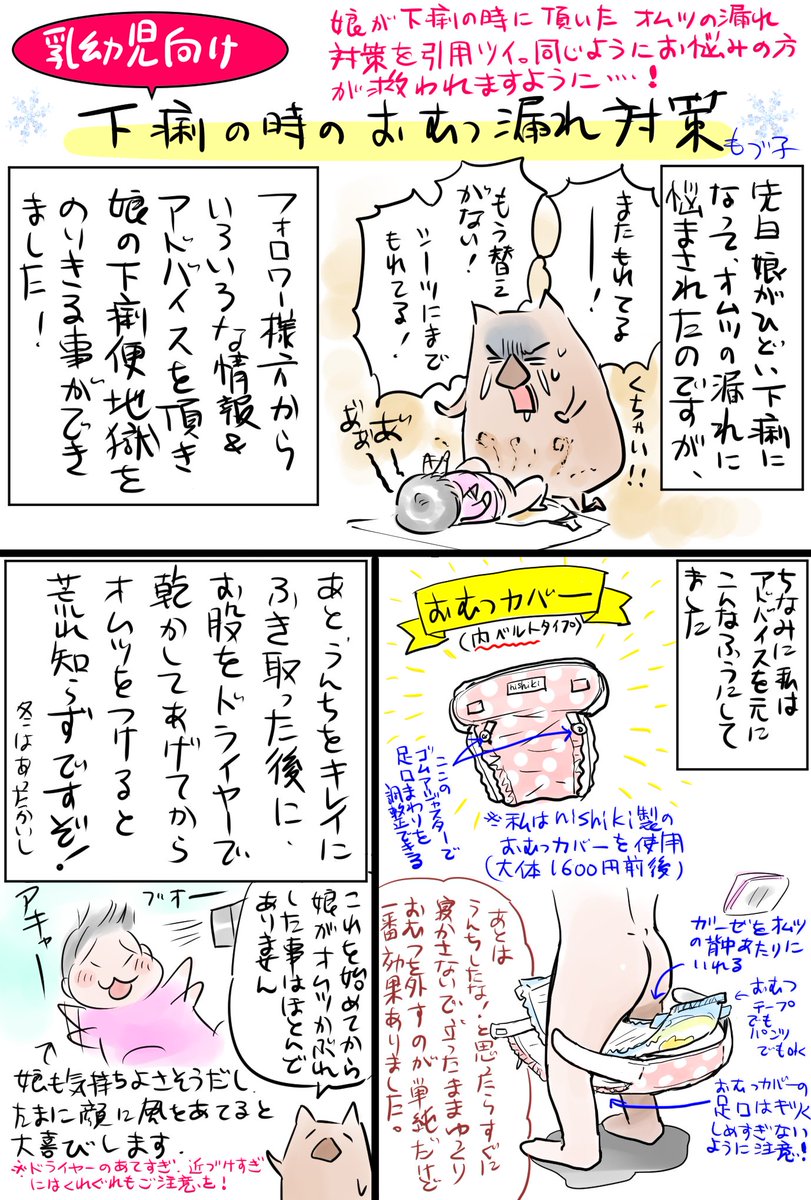 乳幼児向け
娘が下痢の時に頂いたオムツの漏れ
対策を引用ツイ。同じようにお悩みの方
が救われますように…!
下痢の時のおむつ漏れ対策
もづ子
先日娘がひどい下痢に
なって、オムツの漏れに
悩まされたのですが、
またもれてる
ーー!
もう替え
がない!
シーツにまで
もれてる!
くちゃい!!
あ゛あ゛あ゛
フォロワー様方から
いろいろな情報&
アドバイスを頂き
娘の下痢便地獄を
のりきる事ができ
ました!
ちなみに私は
アドバイスを元に
こんなふうにして
ました
おむつカバー
(内ベルトタイプ)
nishiki
ここの
ゴムアジャスターで
足口まわりを
調整できる
※私はnishiki製の
おむつカバーを使用
(大体1600円前後)
ガーゼをオムツ
の背中あたりに
いれる
おむつ
テープ
でも
パンツ
でもok
おむつカバーの
足口はキツく
しめすぎない
ように注意!
あとは
うんちしたな!と思ったらすぐに
寝かさないで立ったままゆっくり
おむつを外すのが単純だけど
一番効果ありました。
あと、うんちをキレイに
ふき取った後に、
お股をドライヤーで
乾かしてあげてから
オムツをつけると
荒れ知らずですぞ!
冬はあったかいし
ブオー
アキャー
これを始めてから
娘がオムツかぶれ
した事はほとんど
ありません
娘も気持ちよさそうだし、
たまに顔に風をあてると
大喜びします.
※ドライヤーのあてすぎ、近づけすぎ
にはくれぐれもご注意を!